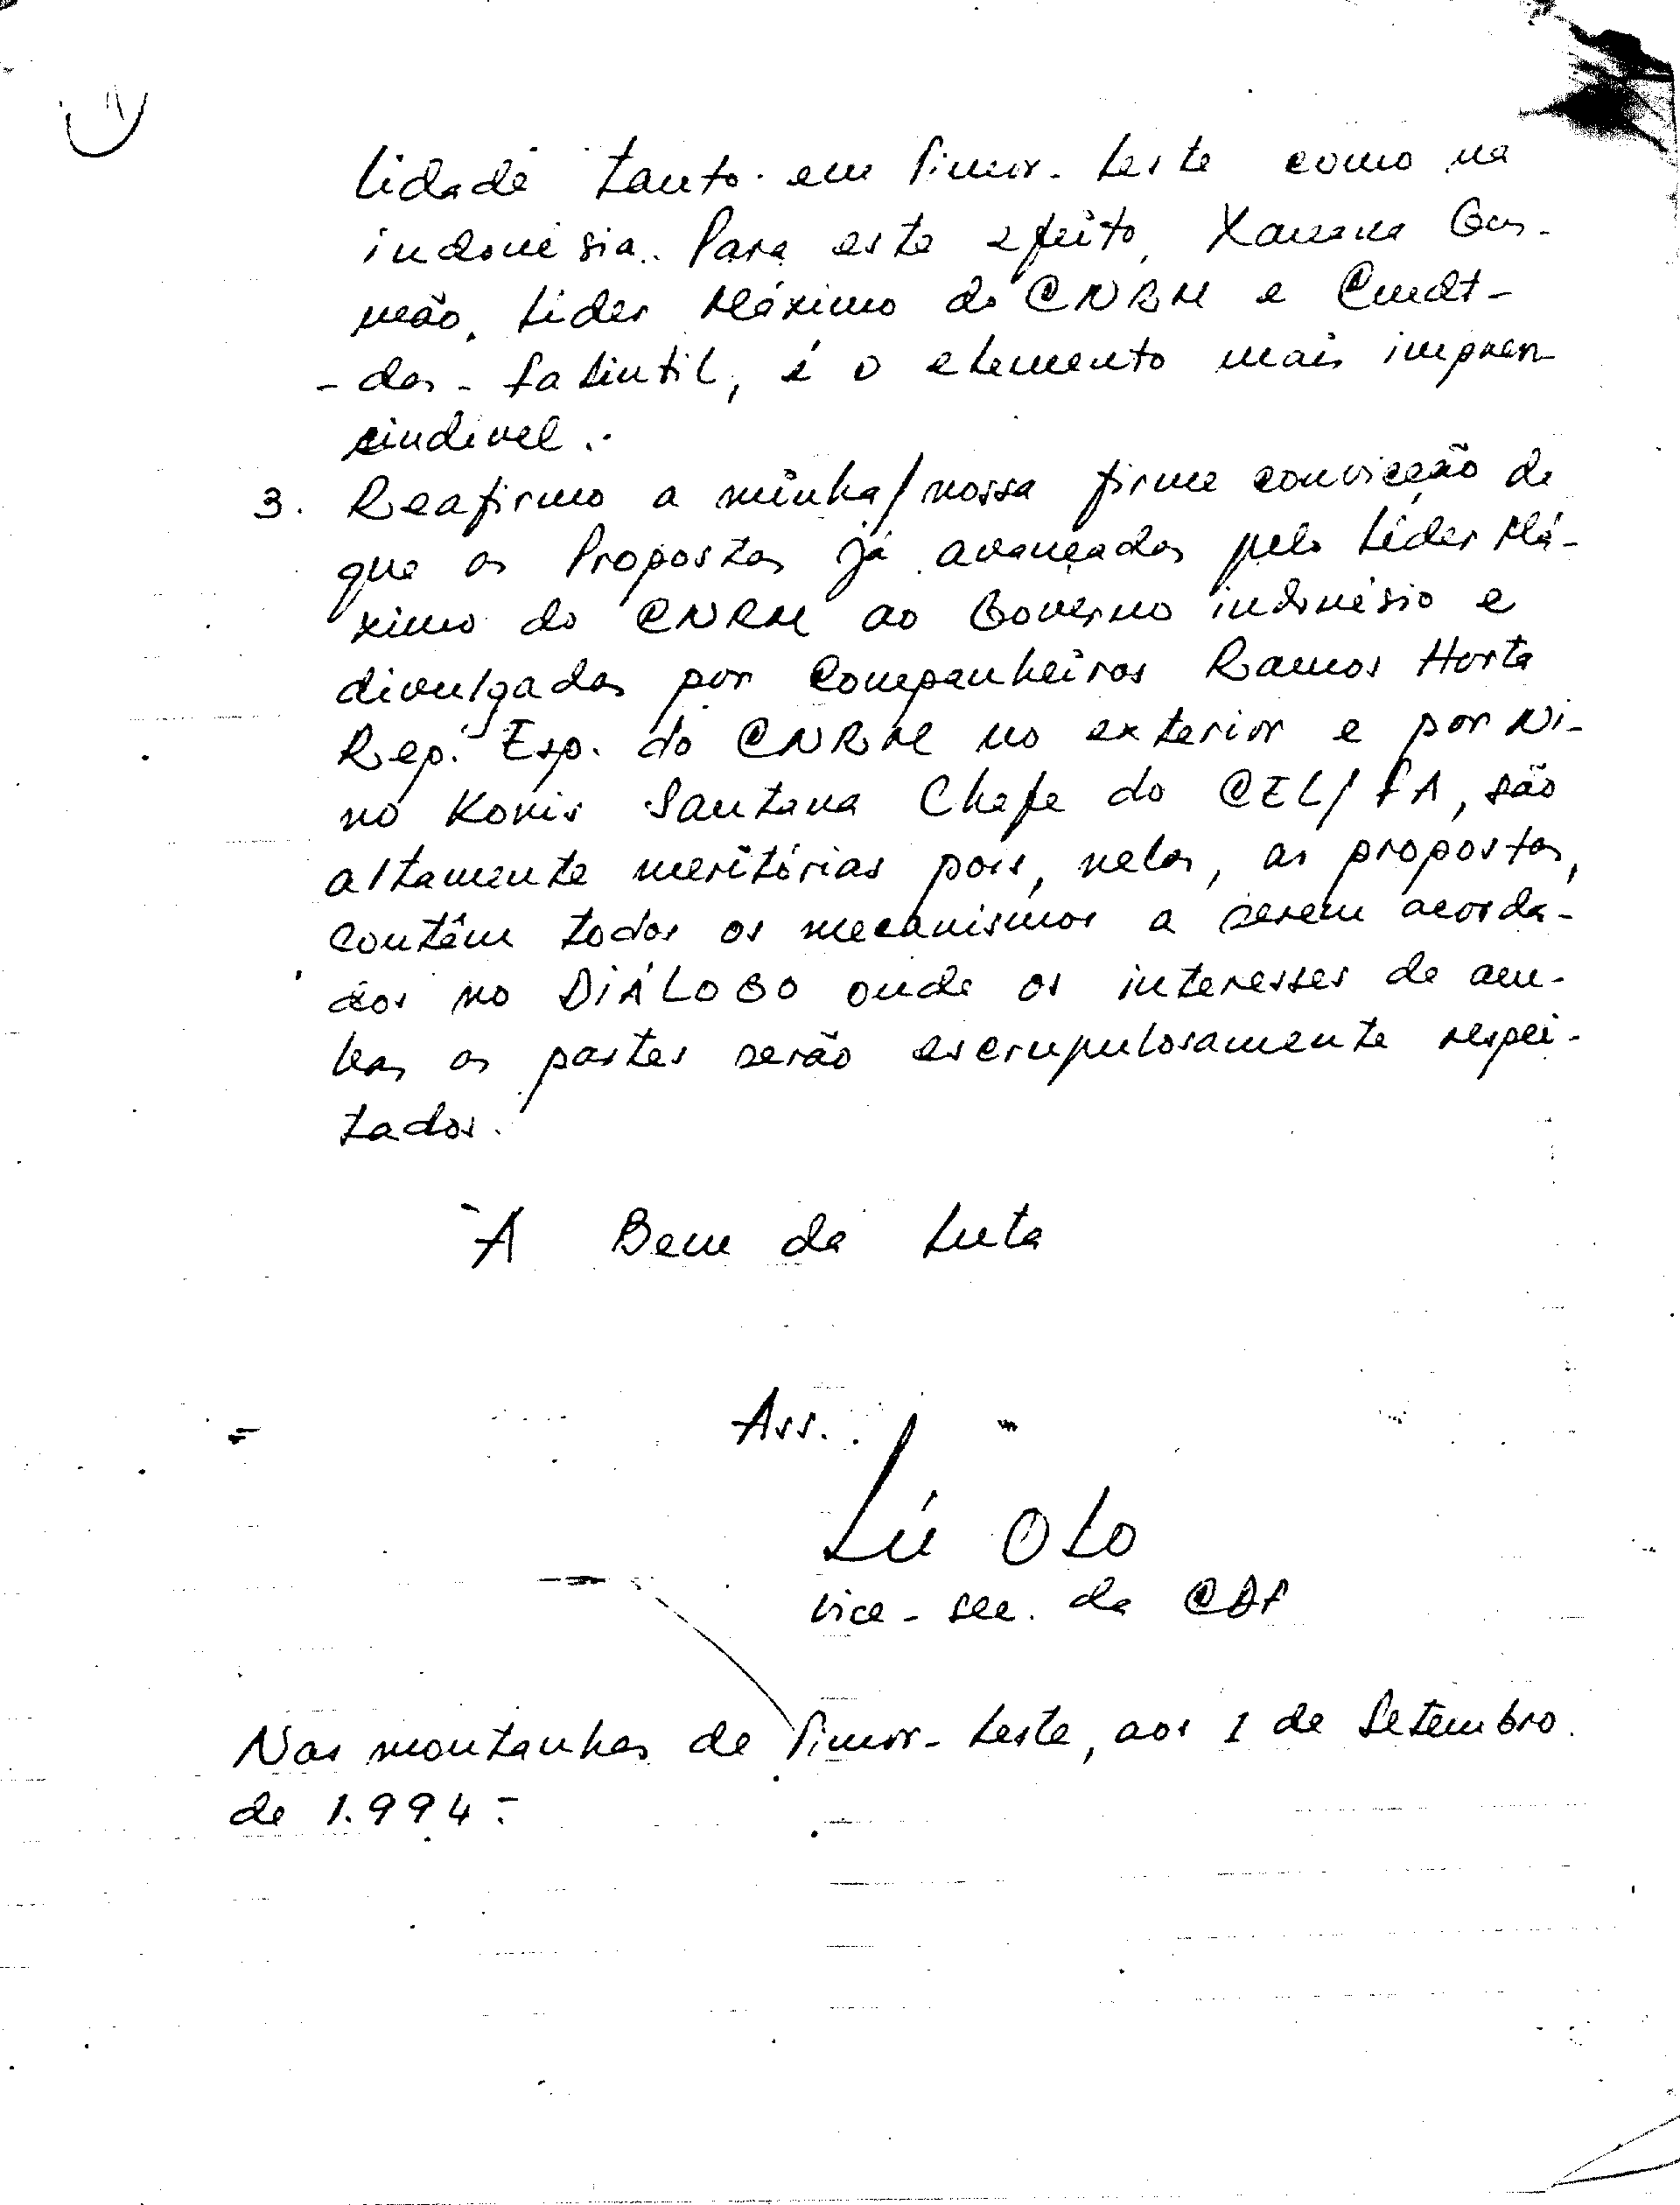 lidade tanto em Timor-Leste como na
indonésia. Para este efeito, Xanana Gus-
mão, Lider Máximo do CNRM e Cmdt-
-das-Falintil, é o elemento mais impres-
cindivel.
3. Reafirmo a minha/nossa firme convicção de
que as Propostas já avançadas pelo Líder Má-
ximo do CNRM ao Governo indonésio e
divulgadas por Companheiros Ramos Horta
Rep. Esp. do CNRM no exterior e por Ni-
no Konis Santana Chefe do CEL/FA, são
altamente meritórias pois, nelas, as propostas,
contêm todos os mecanismos a serem acorda-
dos no DIÁLOGO onde os interesses de am-
bas as partes serão escrupulosamente respei-
tados.
A Bem da Luta
Ass.
Lú OLo
vice-sec. da CDF
Nas montanhas de Timor-Leste, aos 1 de Setembro
de 1.994.-